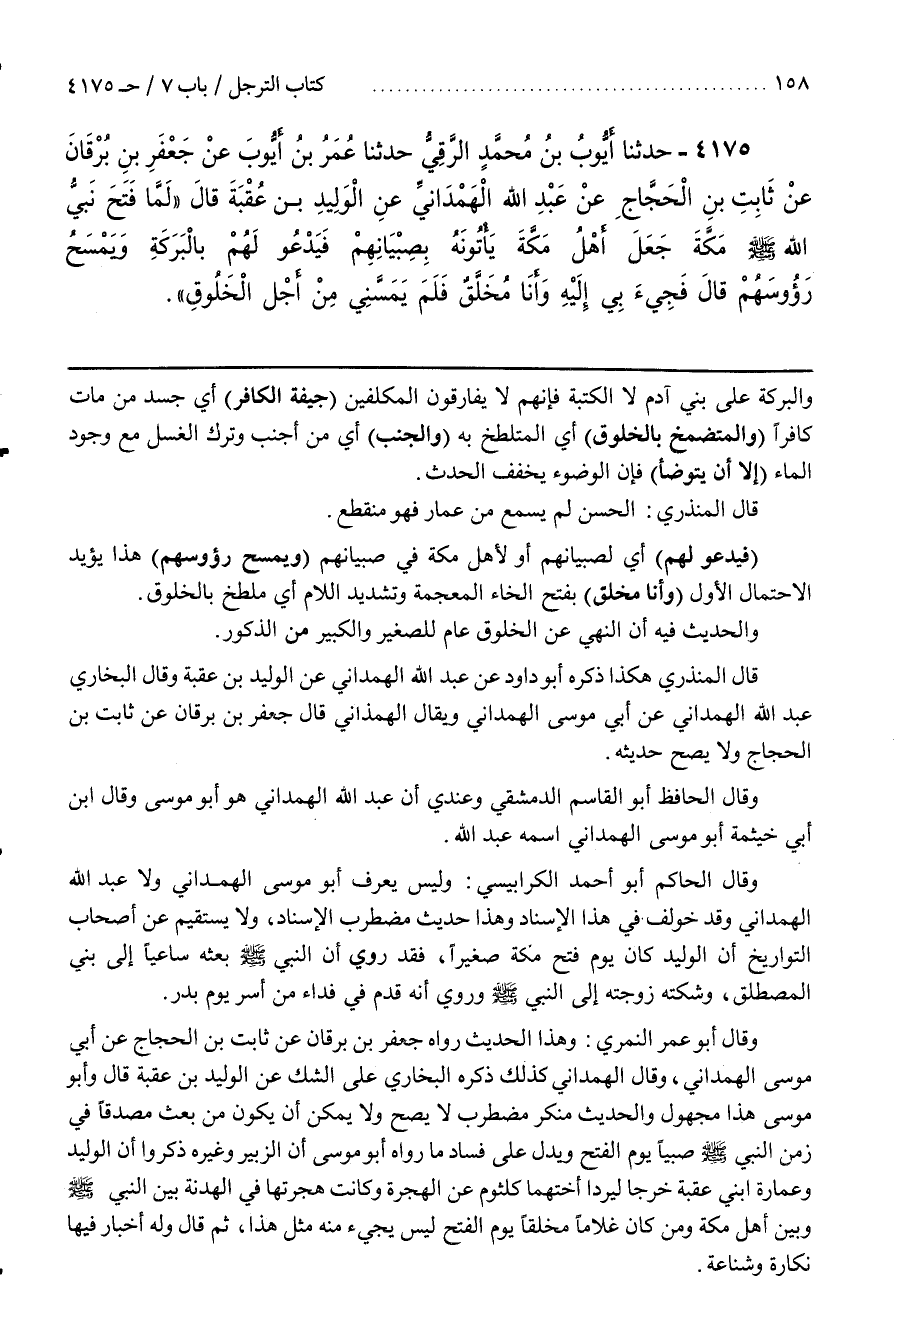 ١٥٨ ................................................ كتاب الترجل / باب ٧ / حـ ٤١٧٥
٤١٧٥ - حدثنا أَيُّوبُ بنُ مُحمَّدٍ الرَّقِيُّ حدثنا عُمَرُ بنُ أَيُّوبَ عنْ جَعْفَرِ بنِ بُرْقَانَ
عنْ ثَابِتِ بنِ الْحَجَّاجِ عنْ عَبْدِ الله الْهَمْدَانيِّ عنِ الْوَلِيدِ بـن عُقْبَةَ قالَ «لَمَّا فَتَحَ نَبيُّ
الله ﷺ مَكَّةَ جَعَلَ أَهْلُ مَكَّةَ يَأْتُونَهُ بِصِبْيَانِهِمْ فَيَدْعُو لَهُمْ بالْبَرَكَةِ وَيَمْسَحُ
رَؤُوسَهُمْ قالَ فَجِيءَ بِي إِلَيْهِ وَأَنَا مُخَلَّقٌ فَلَمَ يَمَسَّنِي مِنْ أَجْلِ الْخَلُوقِ».
والبركة على بني آدم لا الكتبة فإنهم لا يفارقون المكلفين (جيفة الكافر) أي جسد من مات
كافراً (والمتضمخ بالخلوق) أي المتلطخ به (والجنب) أي من أجنب وترك الغسل مع وجود
الماء (إلا أن يتوضأ) فإن الوضوء يخفف الحدث.
قال المنذري: الحسن لم يسمع من عمار فهو منقطع.
(فيدعو لهم) أي لصبيانهم أو لأهل مكة في صبيانهم (ويمسح رؤوسهم) هذا يؤيد
الاحتمال الأول (وأنا مخلق) بفتح الخاء المعجمة وتشديد اللام أي ملطخ بالخلوق.
والحديث فيه أن النهي عن الخلوق عام للصغير والكبير من الذكور.
قال المنذري هكذا ذكره أبو داود عن عبد الله الهمداني عن الوليد بن عقبة وقال البخاري
عبد الله الهمداني عن أبي موسى الهمداني ويقال الهمذاني قال جعفر بن برقان عن ثابت بن
الحجاج ولا يصح حديثه.
وقال الحافظ أبو القاسم الدمشقي وعندي أن عبد الله الهمداني هو أبو موسى وقال ابن
أبي خيثمة أبو موسى الهمداني اسمه عبد الله.
وقال الحاكم أبو أحمد الكرابيسي: وليس يعرف أبو موسى الهمـداني ولا عبد الله
الهمداني وقد خولف في هذا الإسناد وهذا حديث مضطرب الإسناد، ولا يستقيم عن أصحاب
التواريخ أن الوليد كان يوم فتح مكة صغيراً، فقد روي أن النبي ﷺ بعثه ساعياً إلى بني
المصطلق، وشكته زوجته إلى النبي ﷺ وروي أنه قدم في فداء من أسر يوم بدر.
وقال أبو عمر النمري: وهذا الحديث رواه جعفر بن برقان عن ثابت بن الحجاج عن أبي
موسى الهمداني، وقال الهمداني كذلك ذكره البخاري على الشك عن الوليد بن عقبة قال وأبو
موسى هذا مجهول والحديث منكر مضطرب لا يصح ولا يمكن أن يكون من بعث مصدقاً في
زمن النبي ﷺ صبياً يوم الفتح ويدل على فساد ما رواه أبو موسى أن الزبير وغيره ذكروا أن الوليد
وعمارة ابني عقبة خرجا ليردا أختهما كلثوم عن الهجرة وكانت هجرتها في الهدنة بين النبي ﷺ
وبين أهل مكة ومن كان غلاماً مخلقاً يوم الفتح ليس يجيء منه مثل هذا، ثم قال وله أخبار فيها
نكارة وشناعة.